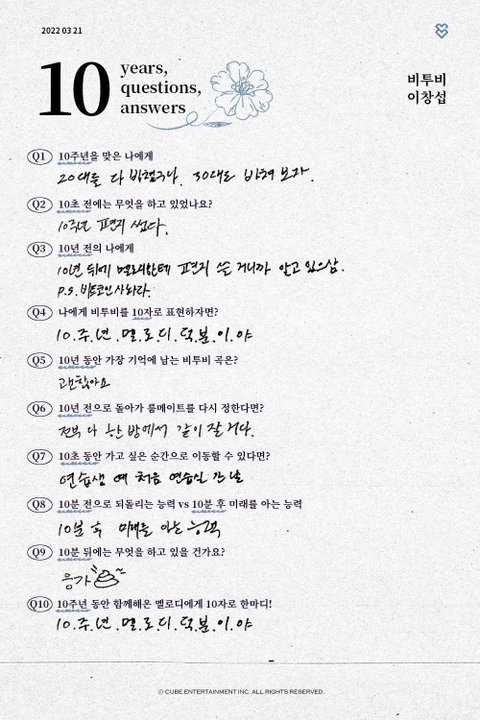 2022 03 21
10 years,
questions,
answers
비투비
이창섭
Q1 10주년을 맞은 나에게
20대를 다 바쳤구나. 30대도 바쳐 보자.
Q2 10초 전에는 무엇을 하고 있었나요?
10주년 편지 썼다.
Q3 10년 전의 나에게
10년 뒤에 멜로디한테 편지 쓸 거니까 알고 있으삼.
P.S. 비트코인 사놔라.
Q4 나에게 비투비를 10자로 표현하자면?
10.주.년.멜.로.디.덕.분.이.야
Q5 10년 동안 가장 기억에 남는 비투비 곡은?
괜찮아요
Q6 10년 전으로 돌아가 룸메이트를 다시 정한다면?
전부 다 한 방에서 같이 잘 거다.
Q7 10초 동안 가고 싶은 순간으로 이동할 수 있다면?
연습생 때 처음 연습실 간 날
Q8 10분 전으로 되돌리는 능력 vs 10분 후 미래를 아는 능력
10분 후 미래를 아는 능력
Q9 10분 뒤에는 무엇을 하고 있을 건가요?
응가
Q10 10주년 동안 함께해온 멜로디에게 10자로 한마디!
10.주.년.멜.로.디.덕.분.이.야
ⓒ CUBE ENTERTAINMENT INC. ALL RIGHTS RESERVED